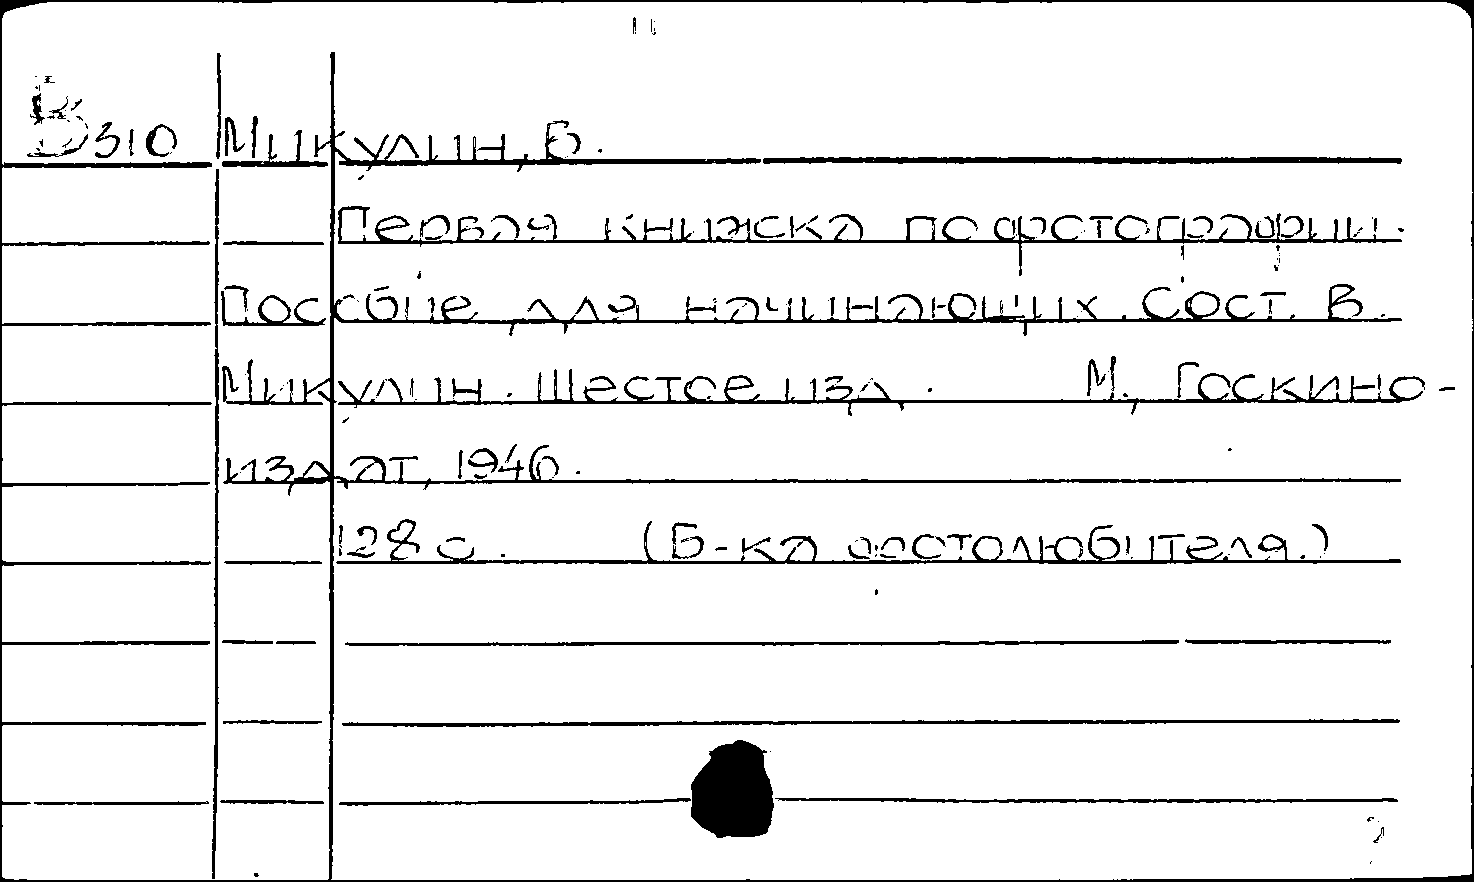 В310 Микулин, В.
Первая книжка по фотографии.
Пособие для начинающих. Сост. В.
Микулин. Шестое изд. М., Госкино-
издат, 1946.
128 с. (Б-ка фотолюбителя.)